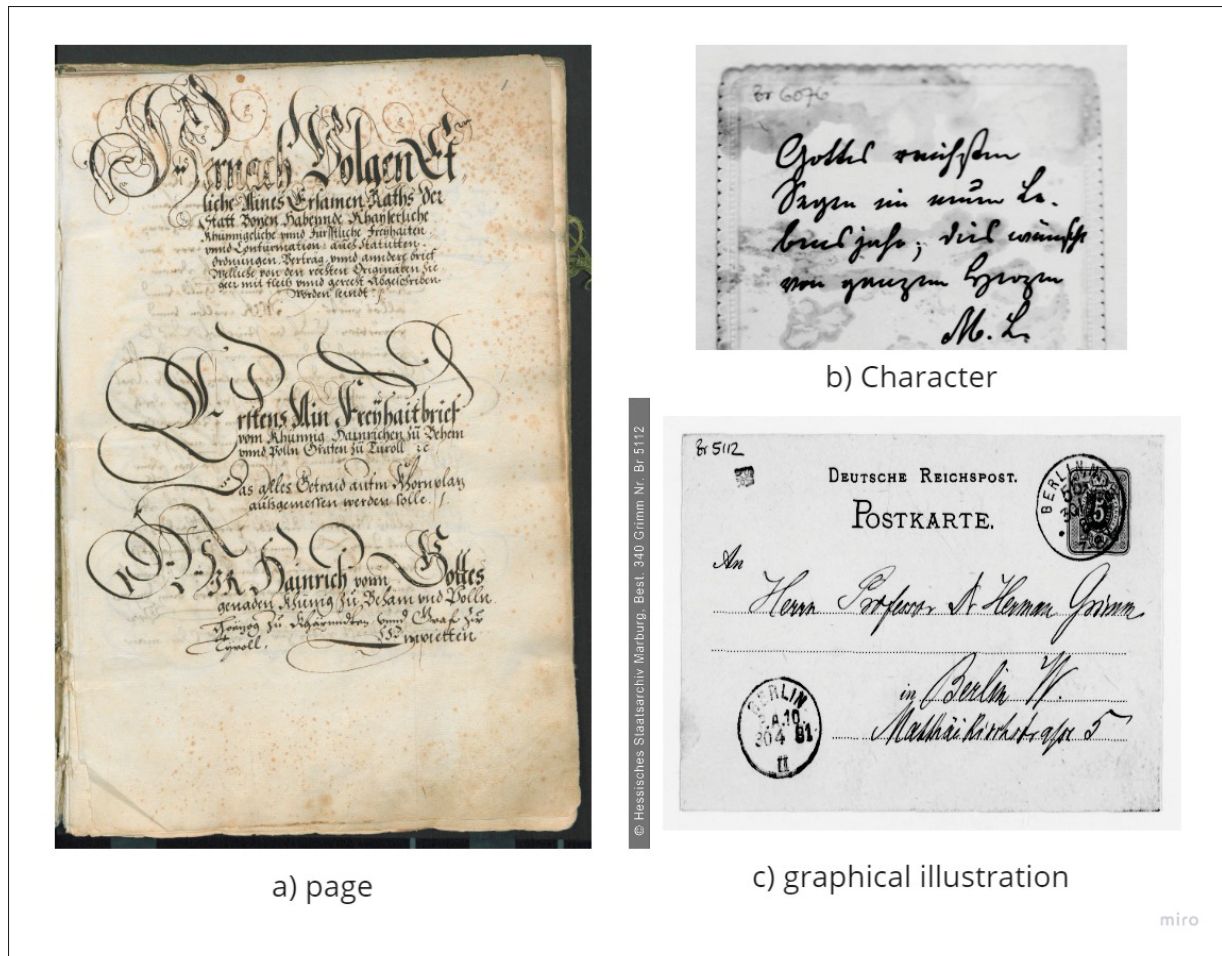 Hernach Volgen Et
liche Aines Ersamen Raths der
Statt Bozen habennde Khayserliche
Khunnigeliche vnnd Fürstliche Freyhaiten
vnnd Confirmation auch Statutten
ordnungen Vertrag vnnd anndere brief
Welliche von den rechten Originalen
mit fleis vnnd gerecht Abgeschriben
Worden seindt
Erstens Ain Freyhaitbrief
vom Khunnig Hainrichen zu Behem
vnnd Polln Grafen zu Tyroll ꝛc
Das alles Getraid auf'm Khornplaz
außgemessen werden solle.
WIR Hainrich vonn Gottes
genaden Khunig zu Beham vnd Polln
Herzog zu Khärnndten vnnd Graf zu
Tyroll.
a) page
Br 6076
Gottes reichsten
Segen im neuen Le-
bensjahr; dies wünscht
von ganzem Herzen
M. L.
b) Character
© Hessisches Staatsarchiv Marburg, Best. 340 Grimm Nr. Br 5112
Br 5112
DEUTSCHE REICHSPOST.
POSTKARTE.
BERLIN W
5
An
Herrn Professor Dr Herman Grimm
in Berlin W.
Matthäikirchstrasse 5
BERLIN
A.10.
30 4 81
II
c) graphical illustration
miro